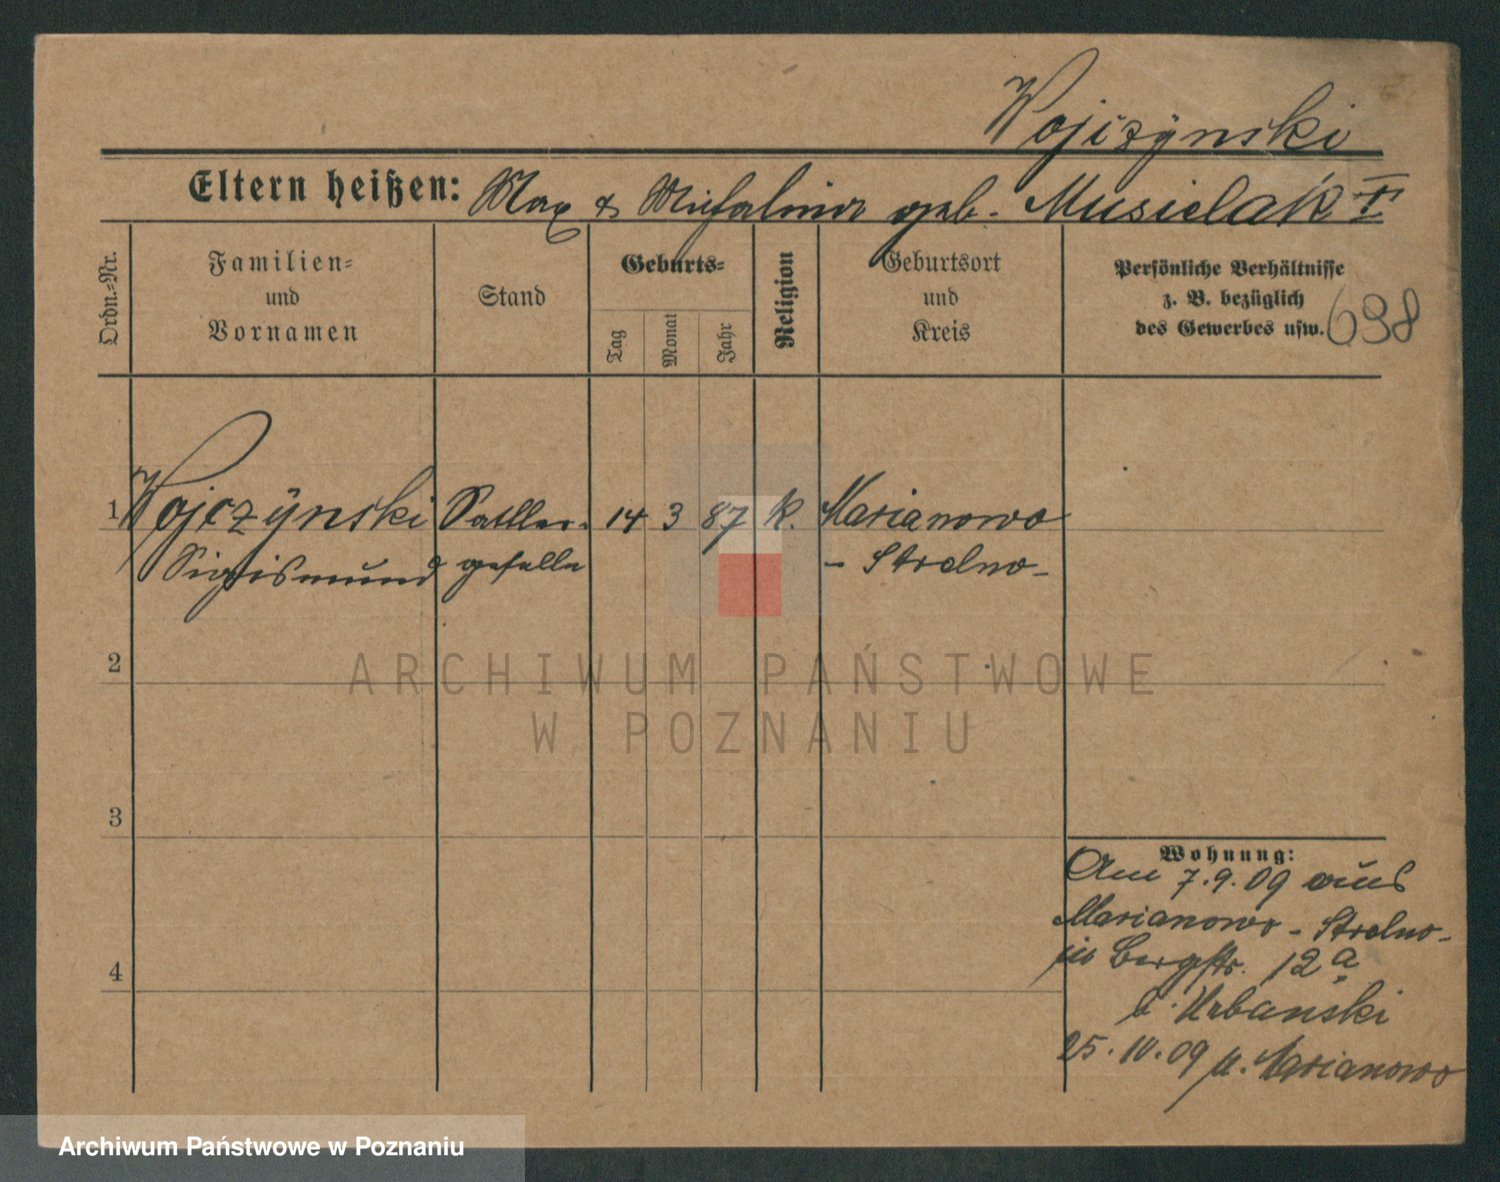 Wojczynski
Eltern heißen: Max & Michalina geb. Musielak
Ordn.=Nr.
Familien=
und
Vornamen
Stand
Geburts=
Tag
Monat
Jahr
Religion
Geburtsort
und
Kreis
Persönliche Verhältnisse
z. B. bezüglich
des Gewerbes usw.
698
1 Wojczynski Sattler= 14 3 87 K. Marianowo
Sigismund geselle - Strelno -
2
ARCHIWUM PAŃSTWOWE
W POZNANIU
3
Wohnung:
Am 7.9.09 aus
Marianowo - Strelno -
Bergstr. 12a
b. Urbanski
25.10.09 n. Marianowo
4
Archiwum Państwowe w Poznaniu